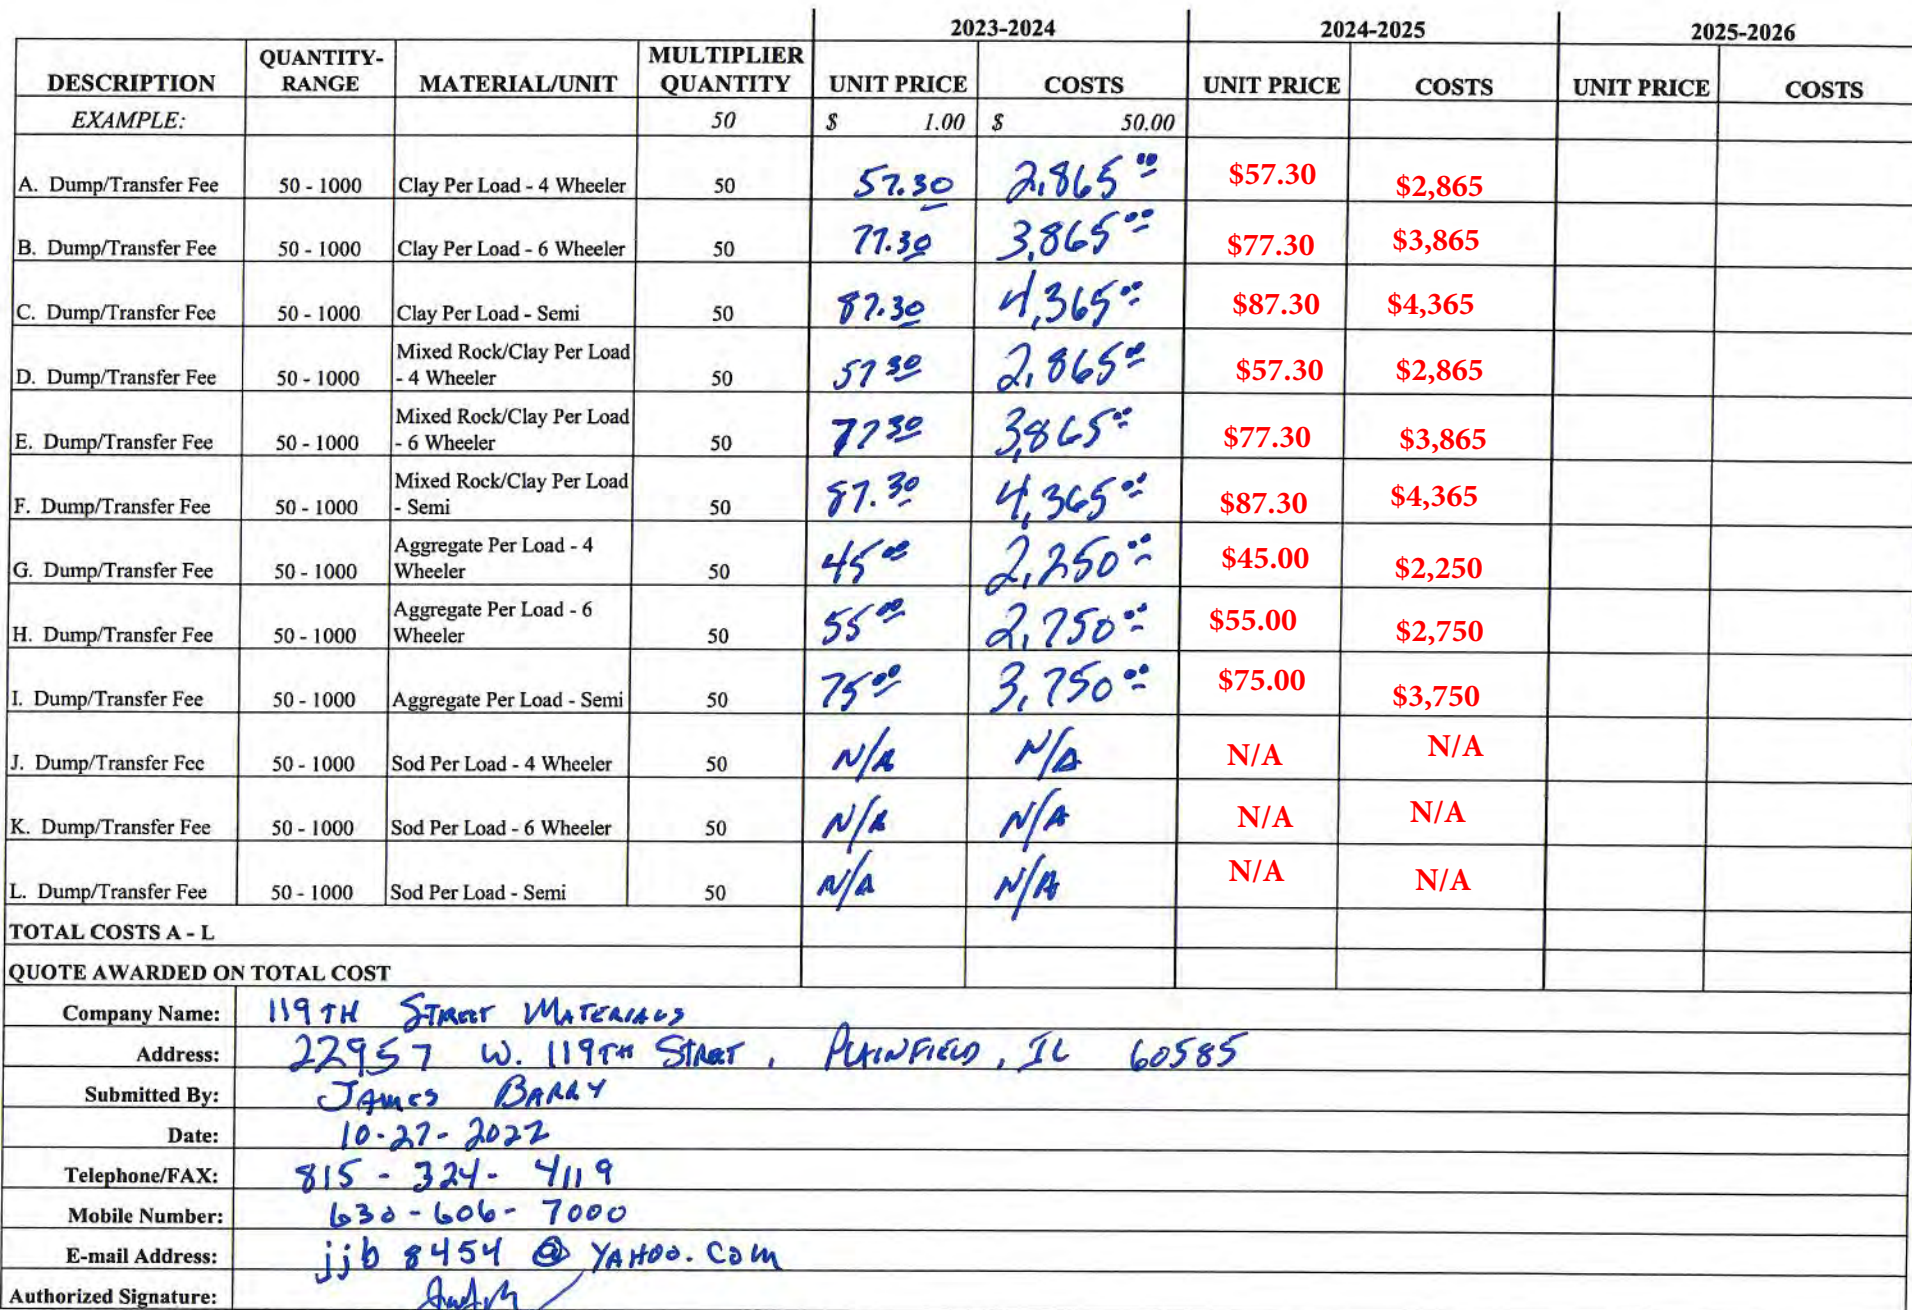 2023-2024 2024-2025 2025-2026
DESCRIPTION QUANTITY-RANGE MATERIAL/UNIT MULTIPLIER QUANTITY UNIT PRICE COSTS UNIT PRICE COSTS UNIT PRICE COSTS
EXAMPLE: 50 $ 1.00 $ 50.00
A. Dump/Transfer Fee 50 - 1000 Clay Per Load - 4 Wheeler 50 57.30 2,865.00 $57.30 $2,865
B. Dump/Transfer Fee 50 - 1000 Clay Per Load - 6 Wheeler 50 77.30 3,865.00 $77.30 $3,865
C. Dump/Transfer Fee 50 - 1000 Clay Per Load - Semi 50 87.30 4,365.00 $87.30 $4,365
D. Dump/Transfer Fee 50 - 1000 Mixed Rock/Clay Per Load - 4 Wheeler 50 57 30 2,865.00 $57.30 $2,865
E. Dump/Transfer Fee 50 - 1000 Mixed Rock/Clay Per Load - 6 Wheeler 50 77 30 3,865.00 $77.30 $3,865
F. Dump/Transfer Fee 50 - 1000 Mixed Rock/Clay Per Load - Semi 50 87.30 4,365.00 $87.30 $4,365
G. Dump/Transfer Fee 50 - 1000 Aggregate Per Load - 4 Wheeler 50 45 00 2,250.00 $45.00 $2,250
H. Dump/Transfer Fee 50 - 1000 Aggregate Per Load - 6 Wheeler 50 55 00 2,750.00 $55.00 $2,750
I. Dump/Transfer Fee 50 - 1000 Aggregate Per Load - Semi 50 75 00 3,750.00 $75.00 $3,750
J. Dump/Transfer Fee 50 - 1000 Sod Per Load - 4 Wheeler 50 N/A N/A N/A N/A
K. Dump/Transfer Fee 50 - 1000 Sod Per Load - 6 Wheeler 50 N/A N/A N/A N/A
L. Dump/Transfer Fee 50 - 1000 Sod Per Load - Semi 50 N/A N/A N/A N/A
TOTAL COSTS A - L
QUOTE AWARDED ON TOTAL COST
Company Name: 119TH STREET MATERIALS
Address: 22957 W. 119TH STREET, PLAINFIELD, IL 60585
Submitted By: JAMES BARRY
Date: 10-27-2022
Telephone/FAX: 815-324-4119
Mobile Number: 630-606-7000
E-mail Address: jjb8454@YAHOO.COM
Authorized Signature: